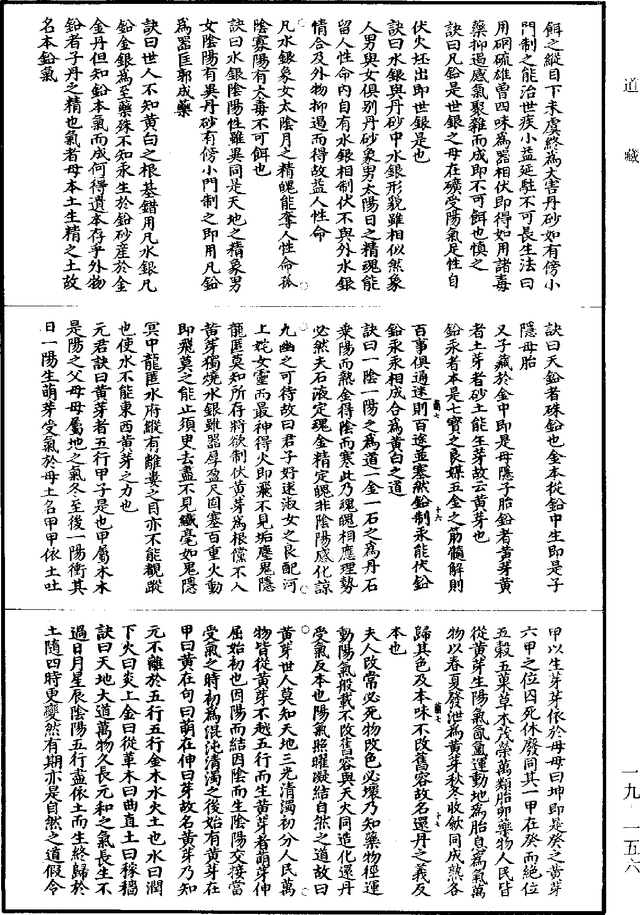 道藏
餌之縱目下未虞終為大害丹砂如有傍小
門制之能治世疾小益延駐不可長生法曰
用硇硫雄曽四味為器相伏即得如用諸毒
藥抑過感氣聚雜而成即不可餌也慎之
訣曰凡鉛是世銀之母在礦受陽氣足性自
伏火坯出即世銀是也
訣曰水銀與丹砂中水銀形貌雖相似然象
人男與女俱別丹砂象男太陽日之精魂能
留人性命内自有水銀相制伏不與外水銀
情合及外物抑過而得故益人性命
凡水銀象女太陰月之精魄能奪人性命孤
陰寡陽有大毒不可餌也
訣曰水銀陰陽性雖異同是天地之精象男
女陰陽有異丹砂有傍小門制之即用凡鉛
為器匡郭成藥
訣曰世人不知黄白之根基錯用凡水銀凡
鉛金銀為至藥殊不知汞生於鉛砂産於金
金丹但知鉛本氣而成何得遺本存乎外物
鉛者子丹之精也氣者母本土生精之土故
名本鉛氣
訣曰天鉛者硃鉛也金本從鉛中生即是子
隱母胎
又子藏於金中即是母隱子胎鉛者黄芽黄
者土芽者砂土能生芽故云黄芽也
鉛汞者本是七寳之良媒五金之筋髓解則
百事俱通迷則百途並塞然鉛制汞能伏鉛
鉛汞汞相成合為黄白之道
訣曰一陰一陽之為道一金一石之為丹石
乗陽而熱金得陰而寒此乃魂魄相應理勢
必然夫石液定魂金精定魄非陰陽感化諒
九幽之可待故曰君子好逑淑女之良配河
上姹女靈而最神得火即飛不見垢塵鬼隱
龍匿莫知所存將欲制伏黄芽為根儻不入
黄芽獨燒水銀雖器厚盈尺固塞百重火動
即飛莫之能止須㬰去盡不見纎毫如鬼隱
冥中龍匿水府縱有離婁之目亦不能覩蹤
也使水不能東西黄芽之力也
元君訣曰黄芽者五行甲子是也甲屬木木
是陽之父母母屬地之氣冬至後一陽衝其
日一陽生萌芽受氣於母土名甲甲依土吐
甲以生芽芽依於母母曰坤即是癸之黄芽
六甲之位囚死休廢同其一甲在癸而絶位
五穀五菓草木茂榮萬類胎卵藥物人民皆
從黄芽生陽氣氤氳運動地為胎息為氣萬
物以春夏發泄為黄芽秋冬收歛同成熟各
歸其色及本味不改舊容故名還丹之義反
本也
夫人改常必死物改色必壞乃知藥物徑運
動陽氣般載不改舊容與天火同造化還丹
受氣反本也陽氣照曜凝結自然之道故曰
黄芽世人莫知天地三光清濁初分人民萬
物皆從黄芽不越五行而生黄芽者萌芽伸
屈始初也因陽而結因陰而生陰陽交接當
受氣之時初為混沌清濁之後始有黄芽在
甲曰黄在句曰萌在伸曰芽故名黄芽乃知
元不離於五行五行金木水火土也水曰潤
下火曰炎上金曰從革木曰曲直土曰稼穡
訣曰天地大道萬物久長元和之氣長生不
過日月星辰陰陽五行盡依土而生終歸於
土隨四時更變然有期亦是自然之道假令
一九一一五六